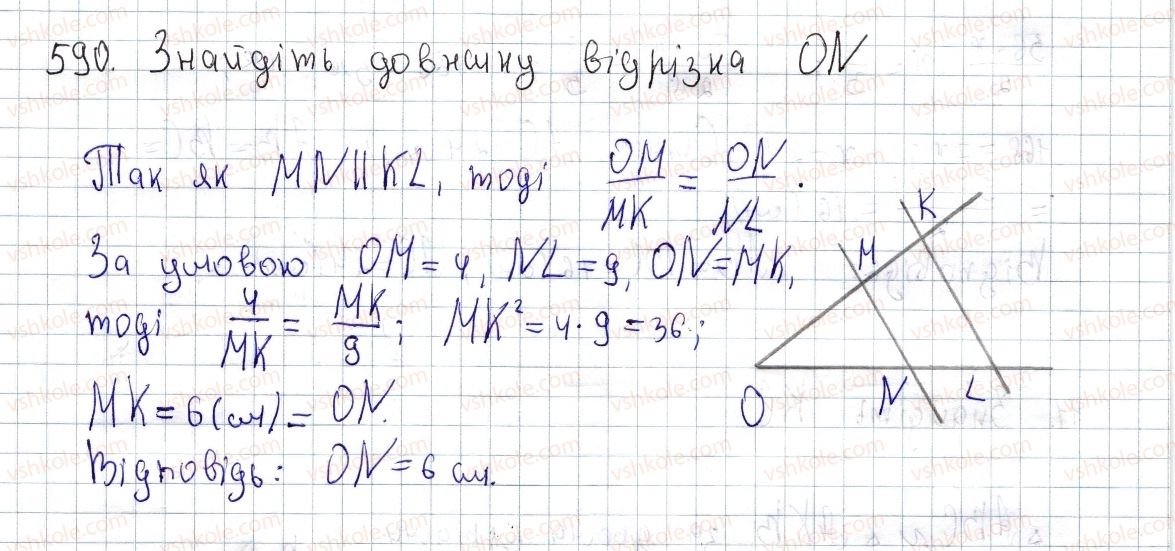 590. Знайдіть довжину відрізка ON
Так як MN || KL, тоді OM/MK = ON/NL.
За умовою OM = 4, NL = 9, ON = MK,
тоді 4/MK = MK/9; MK² = 4·9 = 36;
MK = 6 (см) = ON.
Відповідь: ON = 6 см.
K
M
O
N
L
vshkole.com